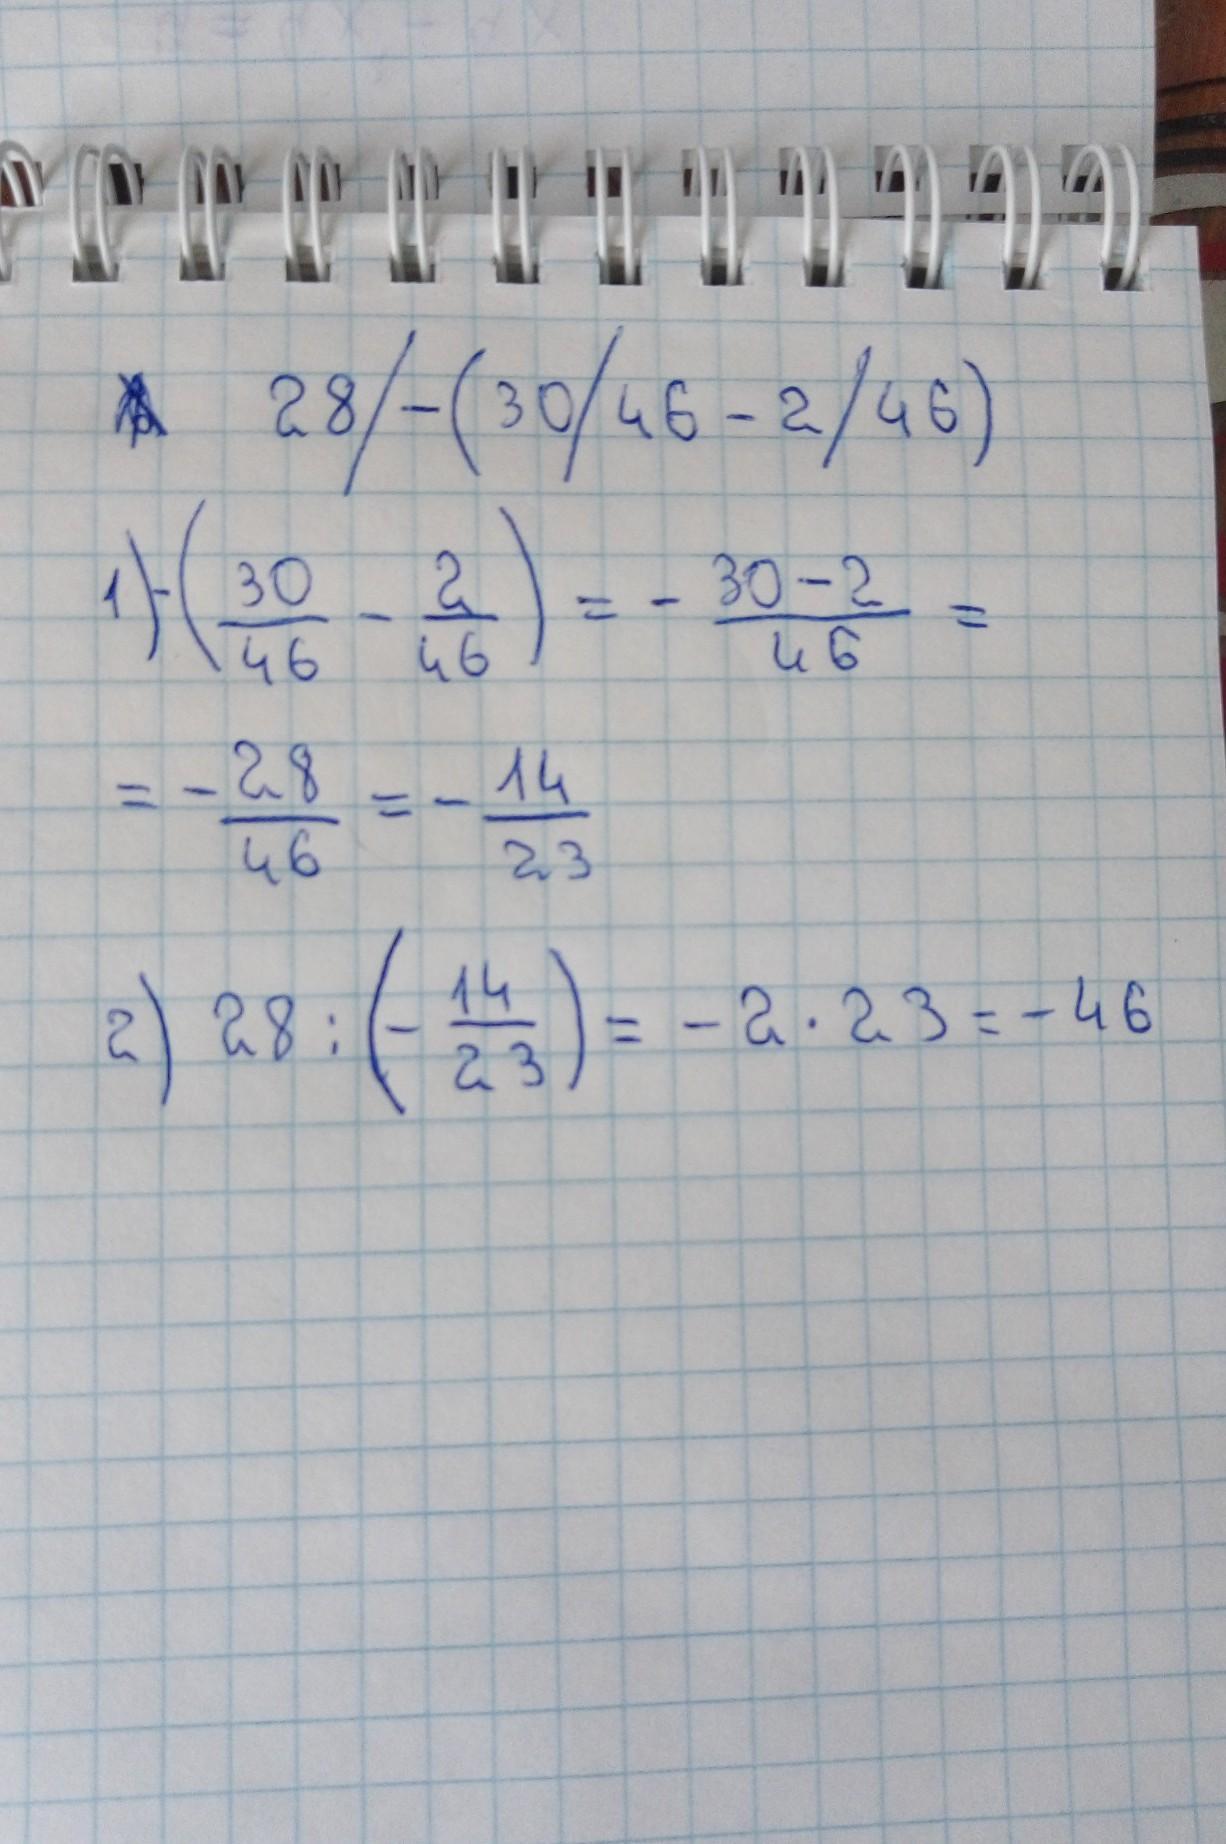 28/-(30/46-2/46)
1) -(30/46 - 2/46) = - (30-2)/46 =
= - 28/46 = - 14/23
2) 28 : (- 14/23) = - 2 · 23 = - 46